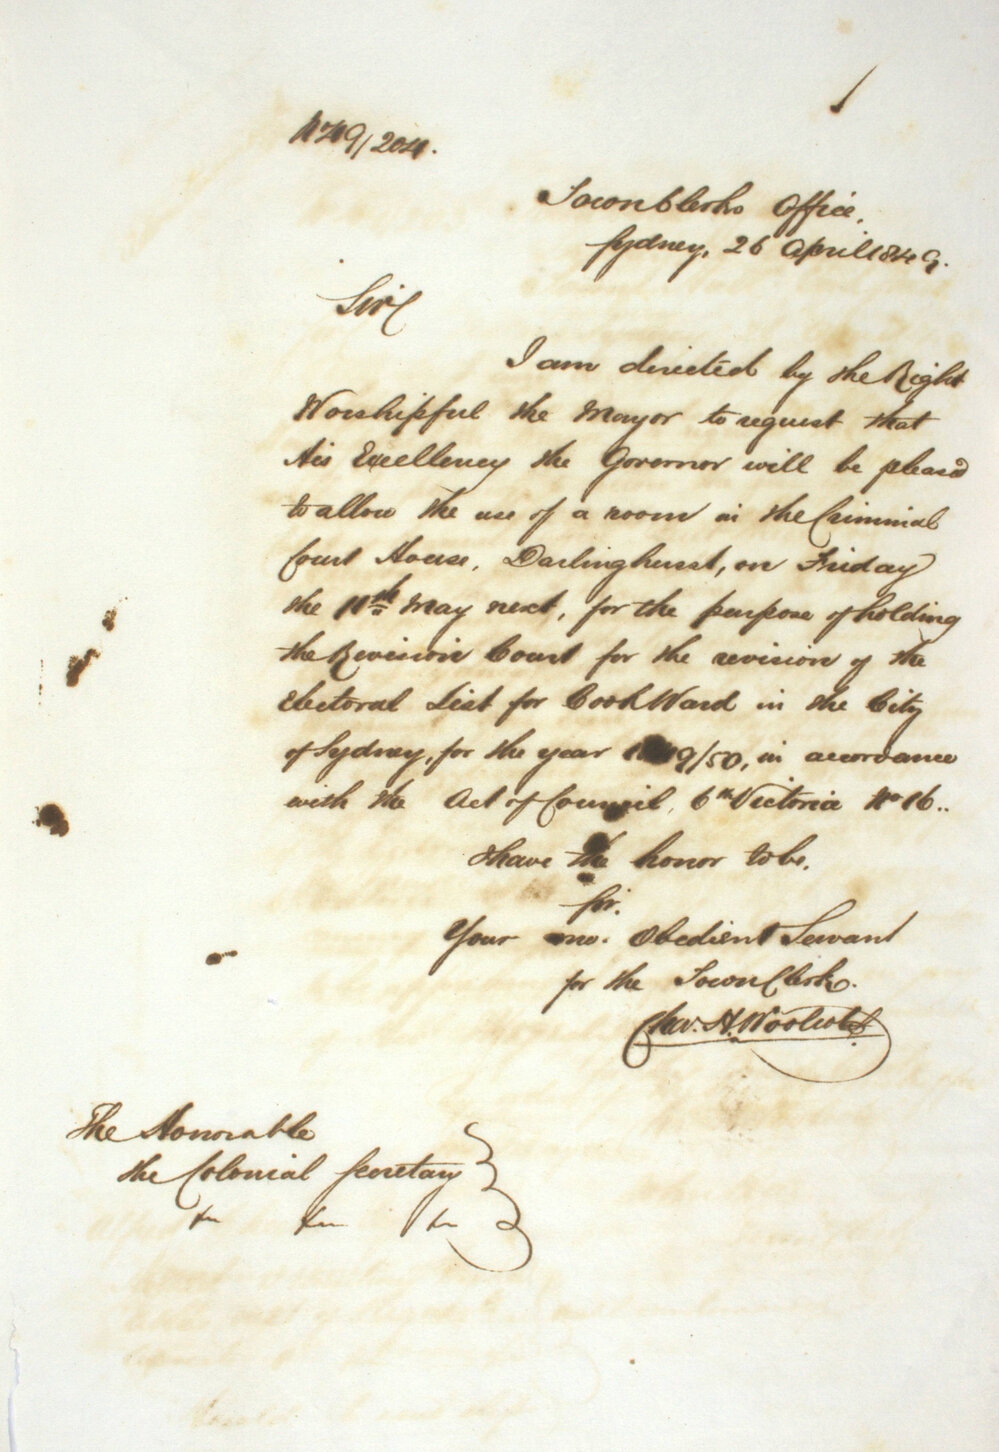 No 49/204.
Town Clerks Office.
Sydney, 26 April 1849.
Sir
I am directed by the Right
Worshipful the Mayor to request that
His Excellency the Governor will be pleased
to allow the use of a room in the Criminal
Court House, Darlinghurst, on Friday
the 11th May next, for the purpose of holding
the Revision Court for the revision of the
Electoral List for Cook Ward in the City
of Sydney, for the year 1849/50, in accordance
with the Act of Council, 6th Victoria No 16..
I have the honor to be,
Sir.
Your mo. Obedient Servant
for the Town Clerk.
Chas. H. Woolcott
The Honorable
the Colonial Secretary
&c &c &c